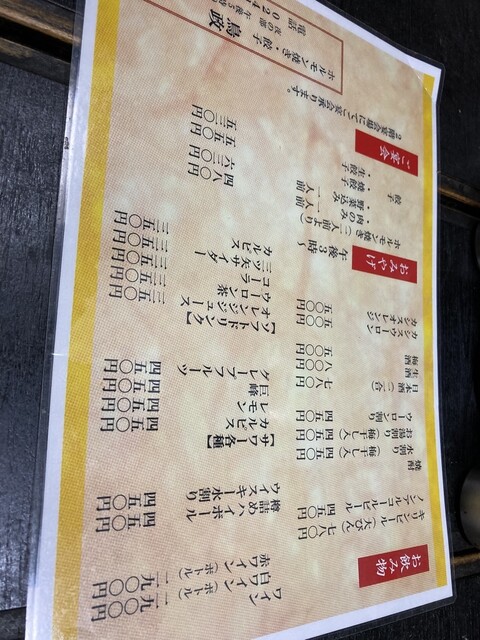 お飲み物
キリンビール(大びん) 七八〇円
ノンアルコールビール 四五〇円
焼酎
水割り(梅干し入) 四五〇円
お湯割り(梅干し入) 四五〇円
ウーロン割り 四五〇円
日本酒 二合 七八〇円
生酒 八〇〇円
梅酒 五〇〇円
カシスウーロン 五〇〇円
カシスオレンジ 五〇〇円
ワイン
白ワイン(ボトル) 一九〇〇円
赤ワイン(ボトル) 一九〇〇円
樽詰めハイボール 四五〇円
ウイスキー水割り 四五〇円
【サワー各種】
カルピス 四五〇円
レモン 四五〇円
巨峰 四五〇円
グレープフルーツ 四五〇円
【ソフトドリンク】
オレンジジュース 三五〇円
ウーロン茶 三五〇円
コーラ 三五〇円
三ツ矢サイダー 三五〇円
カルピス 三五〇円
おみやげ 午後3時〜
ホルモン焼き(二人前より)
・肉のみ 一人前 四八〇円
・野菜込み 一人前 六三〇円
餃子
・焼餃子 五五〇円
・生餃子 五三〇円
ご宴会
2階宴会場にてご宴会承ります。
ホルモン焼き・餃子
鳥政
夜の部 午後5時
電話 024